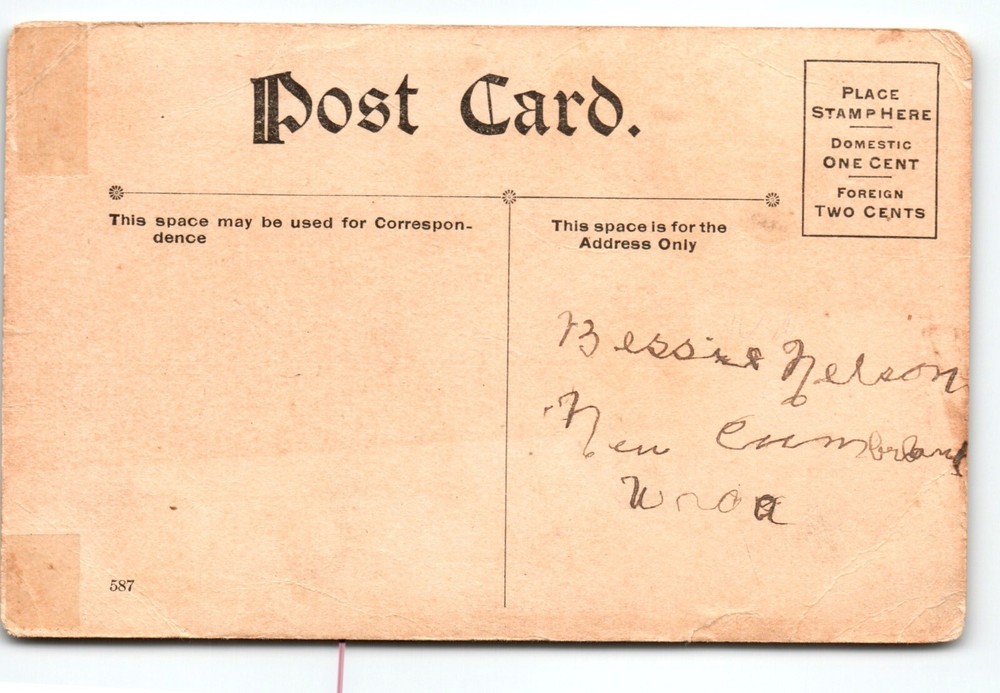 Post Card.
PLACE
STAMP HERE
DOMESTIC
ONE CENT
FOREIGN
TWO CENTS
This space may be used for Correspon-
dence
This space is for the
Address Only
Bessie Nelson
New Cumberland
587